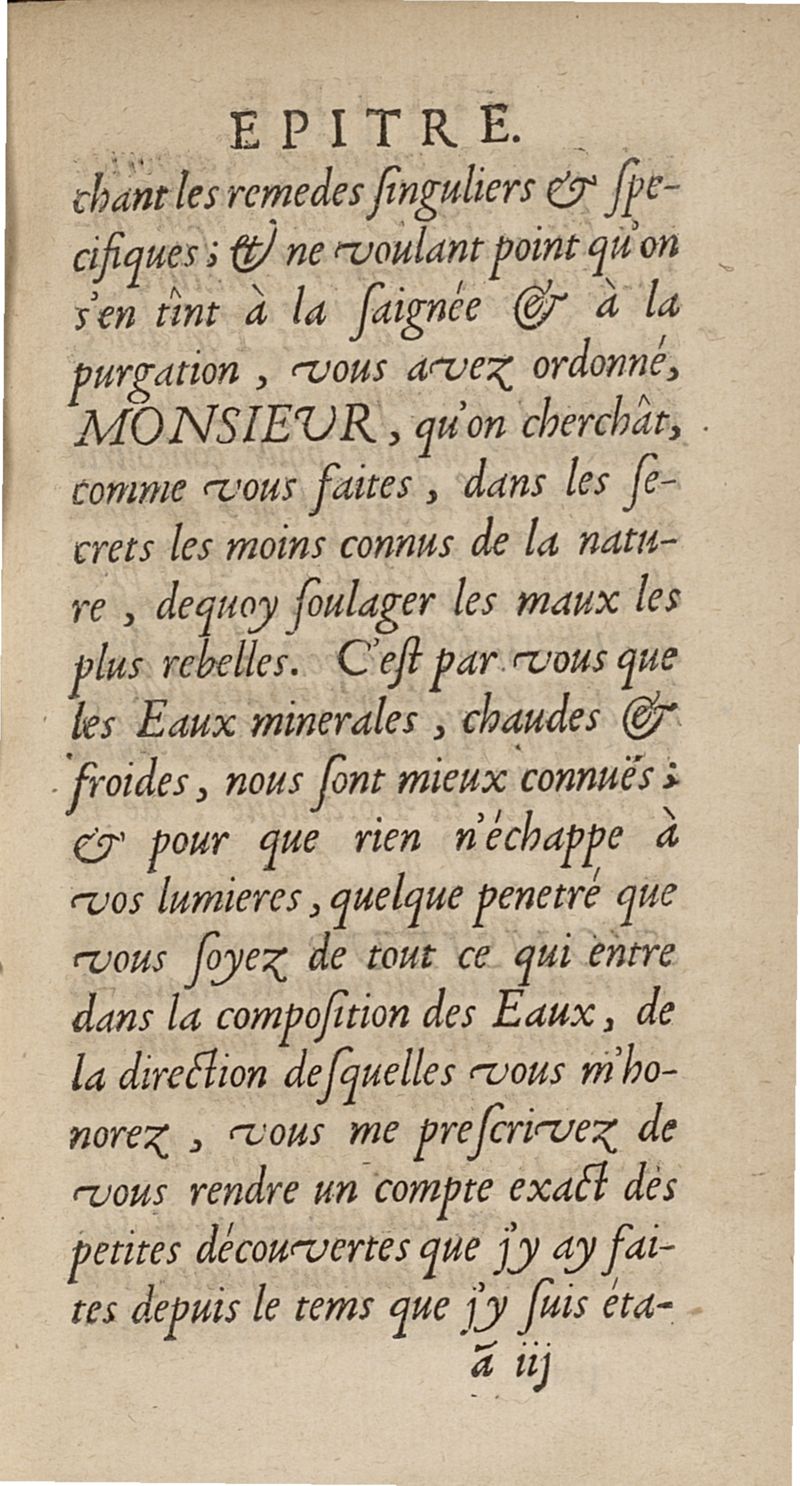 EPITRE.
chant les remedes ſinguliers & ſpe-
cifiques ; & ne voulant point qu'on
s'en tînt à la ſaignée & à la
purgation , vous avez ordonné,
MONSIEUR , qu'on cherchât,
comme vous faites , dans les ſe-
crets les moins connus de la natu-
re , dequoy ſoulager les maux les
plus rebelles. C'eſt par vous que
les Eaux minerales , chaudes &
froides , nous ſont mieux connuës ;
& pour que rien n'échappe à
vos lumieres , quelque penetré que
vous ſoyez de tout ce qui entre
dans la compoſition des Eaux , de
la direction deſquelles vous m'ho-
norez , vous me preſcrivez de
vous rendre un compte exact des
petites découvertes que j'y ay fai-
tes depuis le tems que j'y ſuis éta-
ã iij